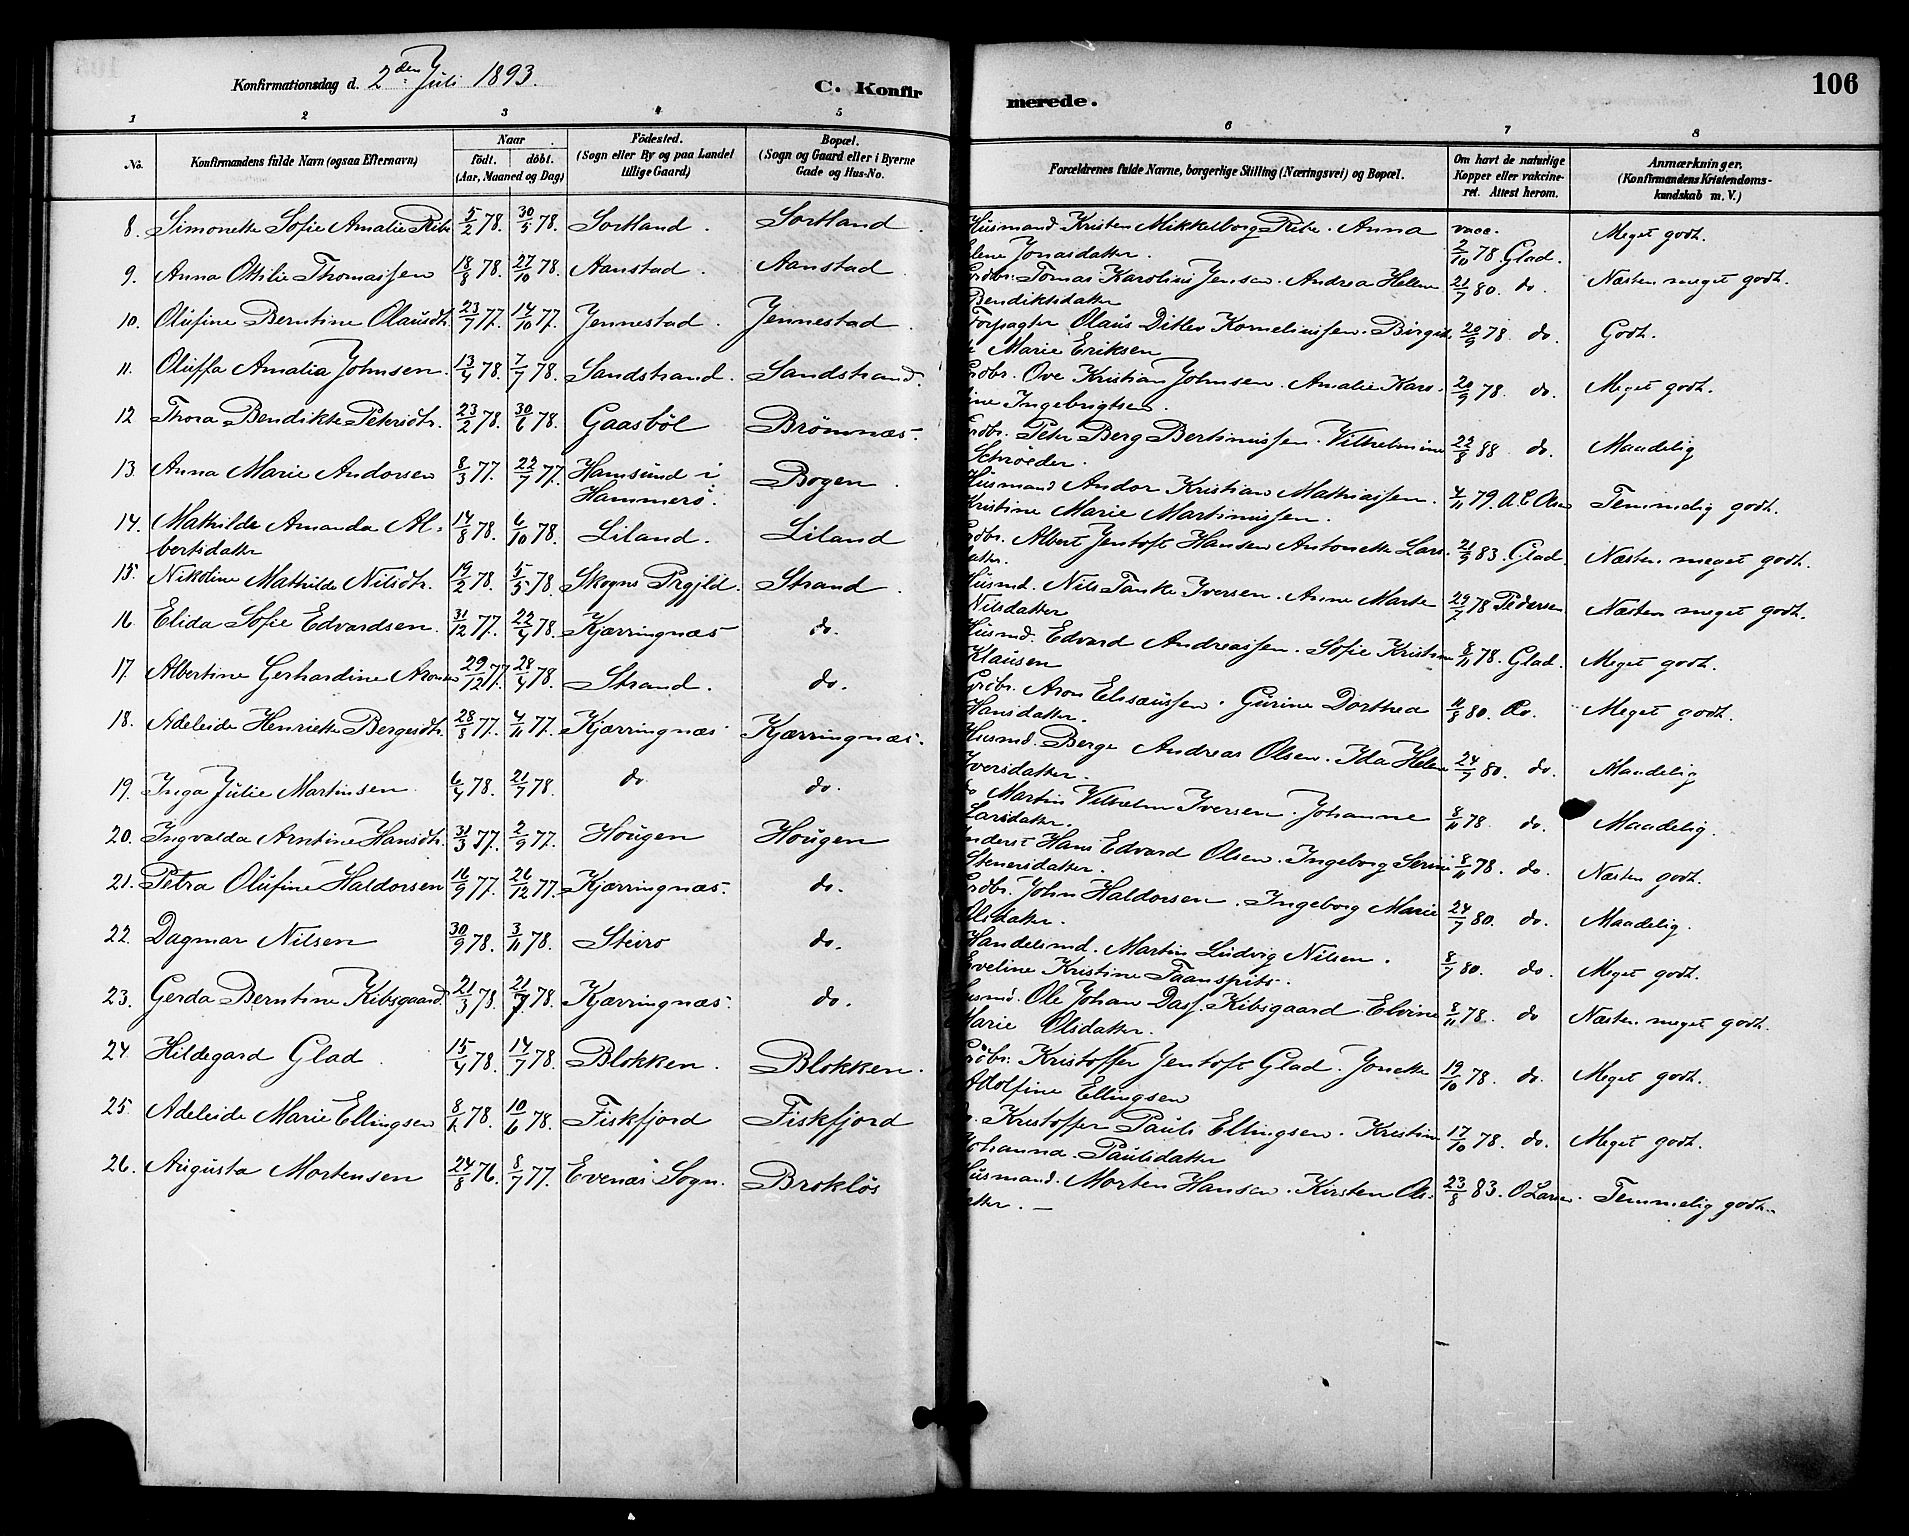 Konfirmationsdag d. 2den Juli 1893.
C. Konfirmerede.
106
1 2 3 4 5 6 7 8
No.
Konfirmandens fulde Navn (ogsaa Efternavn)
Naar
födt. döbt.
(Aar, Maaned og Dag)
Födested.
(Sogn eller By og paa Landet
tillige Gaard)
Bopæl.
(Sogn og Gaard eller i Byerne
Gade og Hus-No.
Forældrenes fulde Navne, borgerlige Stilling (Næringsvei) og Bopæl.
Om havt de naturlige
Kopper eller vakcine-
ret. Attest herom.
Anmærkninger.
(Konfirmandens Kristendoms-
kundskab m. V.)
8. Simonette Sofie Amalie Ribe 5/2 78. 30/5 78. Sortland. Sortland. Husmand Kristen Mikkelborg Ribe. Anna vacc. Meget godt.
Jonasdatter. 2/10 78 Glad.
9. Anna Ottilie Thomassen 18/8 78. 27/10 78. Aanstad. Aanstad Tomas Karolius Jensen. Andrea Helene 21/7 80. do. Næsten meget godt.
Bendiktsdatter
10. Olufine Berntine Olausdt. 23/7 77. 14/10 77. Jennestad. Jennestad. Forpagter Olaus Ditlev Korneliussen. Birgit 20/9 78 do. Godt.
Marie Eriksen
11. Oluffa Amalia Johnsen. 13/4 78. 7/7 78. Sandstrand. Sandstrand. Ove Kristian Johnsen. Amalie Karo- 20/9 78 do. Meget godt.
ine Ingebrigtsen.
12 Thora Bendikte Petersdtr. 23/2 78. 30/6 78. Gaasböl Brömnæs. Peter Berg Bertinussen. Vilhelmine 22/8 88 do. Maadelig
Schröeder.
13. Anna Marie Andorsen 8/3 77. 22/7 77. Hamsund i Bogen. Husmand Andor Kristian Mathiassen. 4/11 79. A.C. Olsen Temmelig godt.
Hammerö. Kristine Marie Martinussen.
14. Mathilde Amanda Al- 14/8 78. 6/10 78. Liland. Liland Albert Jentoft Hansen Antonette Lars- 21/9 83. Glad. Næsten meget godt.
bertsdatter
15. Nikoline Mathilde Nilsdtr. 19/2 78. 5/5 78. Skogns Prgjld. Strand. Husmd. Nils Tanke Iversen. Anne Marte 29/7 78 Pedersen Næsten meget godt.
Nilsdatter
16 Elida Sofie Edvardsen. 31/12 77. 22/4 78. Kjærringnæs do. Husmd. Edvard Andreassen. Sofie Kristine 8/11 78. Glad. Meget godt.
Klausen
17. Albertine Gerhardine Aronsen 29/12 77. 28/4 78. Strand. do. Grdbr. Aron Elisæussen. Gurine Dorthea 11/8 80. do. Meget godt.
Hansdatter.
18. Adeleide Henriette Bergesdtr. 28/8 77. 4/11 77. Kjærringnæs Kjærringnæs. Husmd. Berge Andreas Olsen. Ida Helene 24/7 80. do. Maadelig
Iversdatter.
19. Inga Julie Martinsen 6/4 78. 21/7 78. do do. Martin Vilhelm Iversen. Johanne 8/11 78. do. Maadelig.
Larsdatter.
20. Ingvalda Arntine Hansdtr. 31/3 77. 2/9 77. Hougen Hougen Inderst Hans Edvard Olsen. Ingeborg Serine 8/11 78. do. Næsten godt.
Stenersdatter.
21. Petra Olufine Haldorsen 16/9 77. 26/12 77. Kjærringnæs. do. Grdbr. John Haldorsen. Ingeborg Marie 24/7 80. do. Maadelig.
Olsdatter.
22. Dagmar Nilsen 30/9 78. 3/11 78. Steiro do. Handelsmd. Martin Ludvig Nilsen. 8/7 80. do. Meget godt.
Eveline Kristine Taanspits.
23. Gerda Berntine Kibsgaard. 21/3 78. 21/7 78. Kjærringnæs. do. Husmd. Ole Johan Dass Kibsgaard. Elvine 8/11 78. do Næsten meget godt.
Marie Olsdatter.
24. Hildegard Glad. 15/4 78. 14/7 78. Blokken. Blokken. Grdbr. Kristoffer Jentoft Glad. Jonette 19/10 78. do. Meget godt.
Adolfine Ellingsen
25. Adeleide Marie Ellingsen 8/2 78. 10/6 78. Fiskfjord Fiskfjord Kristoffer Pauls Ellingsen. Kristine 17/10 78. do. Meget godt.
Johanna Paulsdatter
26. Augusta Mortensen 24/8 76. 8/7 77. Evenæs Sogn. Broklös Husmand. Morten Hansen. Kirsten Ols- 23/8 83. O Larsen. Temmelig godt.